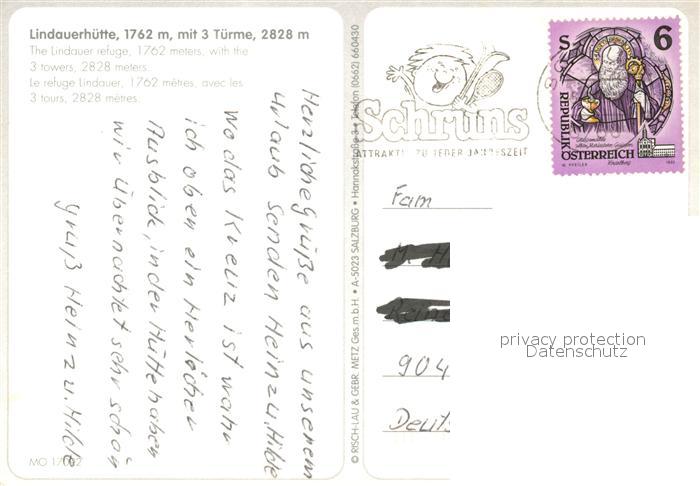 Lindauerhütte, 1762 m, mit 3 Türme, 2828 m
The Lindauer refuge, 1762 meters, with the
3 towers, 2828 meters.
Le refuge Lindauer, 1762 mètres, avec les
3 tours, 2828 mètres.
Herzliche grüße aus unserem
urlaub senden Heinz u. Hilde
Wo das Kreuz ist wahr
ich oben ein Herlicher
Ausblick, in der Hütte haben
wir Übernachtet sehr schön
gruß Heinz u. Hilde
MO 17
© RISCH-LAU & GEBR. METZ Ges.m.b.H. • A-5023 SALZBURG • Hannakstraße 3 • Telefon (0662) 660430
Schruns
ATTRAKTIV ZU JEDER JAHRESZEIT
S 6
REPUBLIK
ÖSTERREICH
Fam
904
Deut
privacy protection
Datenschutz